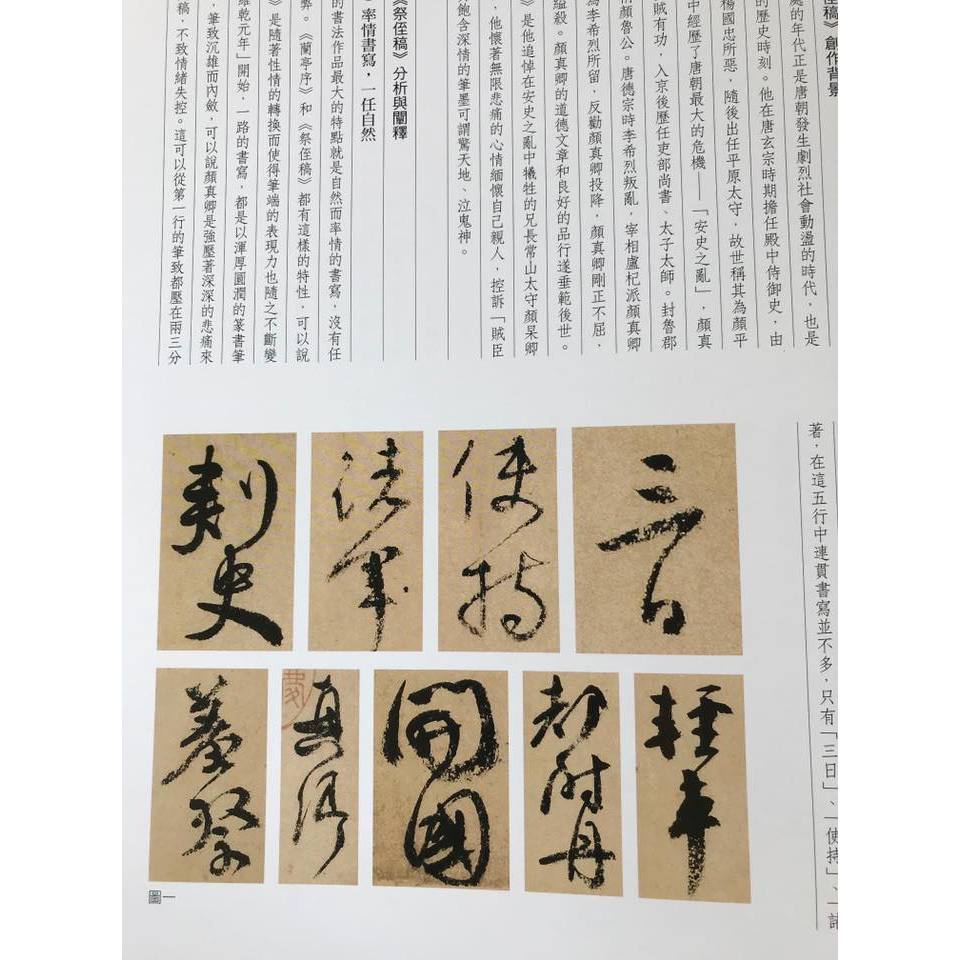 侄稿》創作背景
處的年代正是唐朝發生劇烈社會動盪的時代，也是
的歷史時刻。他在唐玄宗時期擔任殿中侍御史，由
楊國忠所惡，隨後出任平原太守，故世稱其為顏平
中經歷了唐朝最大的危機——「安史之亂」，顏真
賊有功，入京後歷任吏部尚書、太子太師。封魯郡
顏魯公。唐德宗時李希烈叛亂，宰相盧杞派顏真卿
為李希烈所留，反勸顏真卿投降，顏真卿剛正不屈，
縊殺。顏真卿的道德文章和良好的品行遂垂範後世。
》是他追悼在安史之亂中犧牲的兄長常山太守顏杲卿
，他懷著無限悲痛的心情緬懷自己親人，控訴「賊臣
飽含深情的筆墨可謂驚天地、泣鬼神。
《祭侄稿》分析與闡釋
率情書寫，一任自然
的書法作品最大的特點就是自然而率情的書寫，沒有任
弊。《蘭亭序》和《祭侄稿》都有這樣的特性，可以說
》是隨著性情的轉換而使得筆端的表現力也隨之不斷變
維乾元年」開始，一路的書寫，都是以渾厚圓潤的篆書筆
，筆致沉雄而內斂，可以說顏真卿是強壓著深深的悲痛來
稿，不致情緒失控。這可以從第一行的筆致都壓在兩三分
著，在這五行中連貫書寫並不多，只有「三日」、「使持」、「諸
三日
使持
諸軍
刺史
輕車
都尉丹
開國
真卿
羞祭
圖一